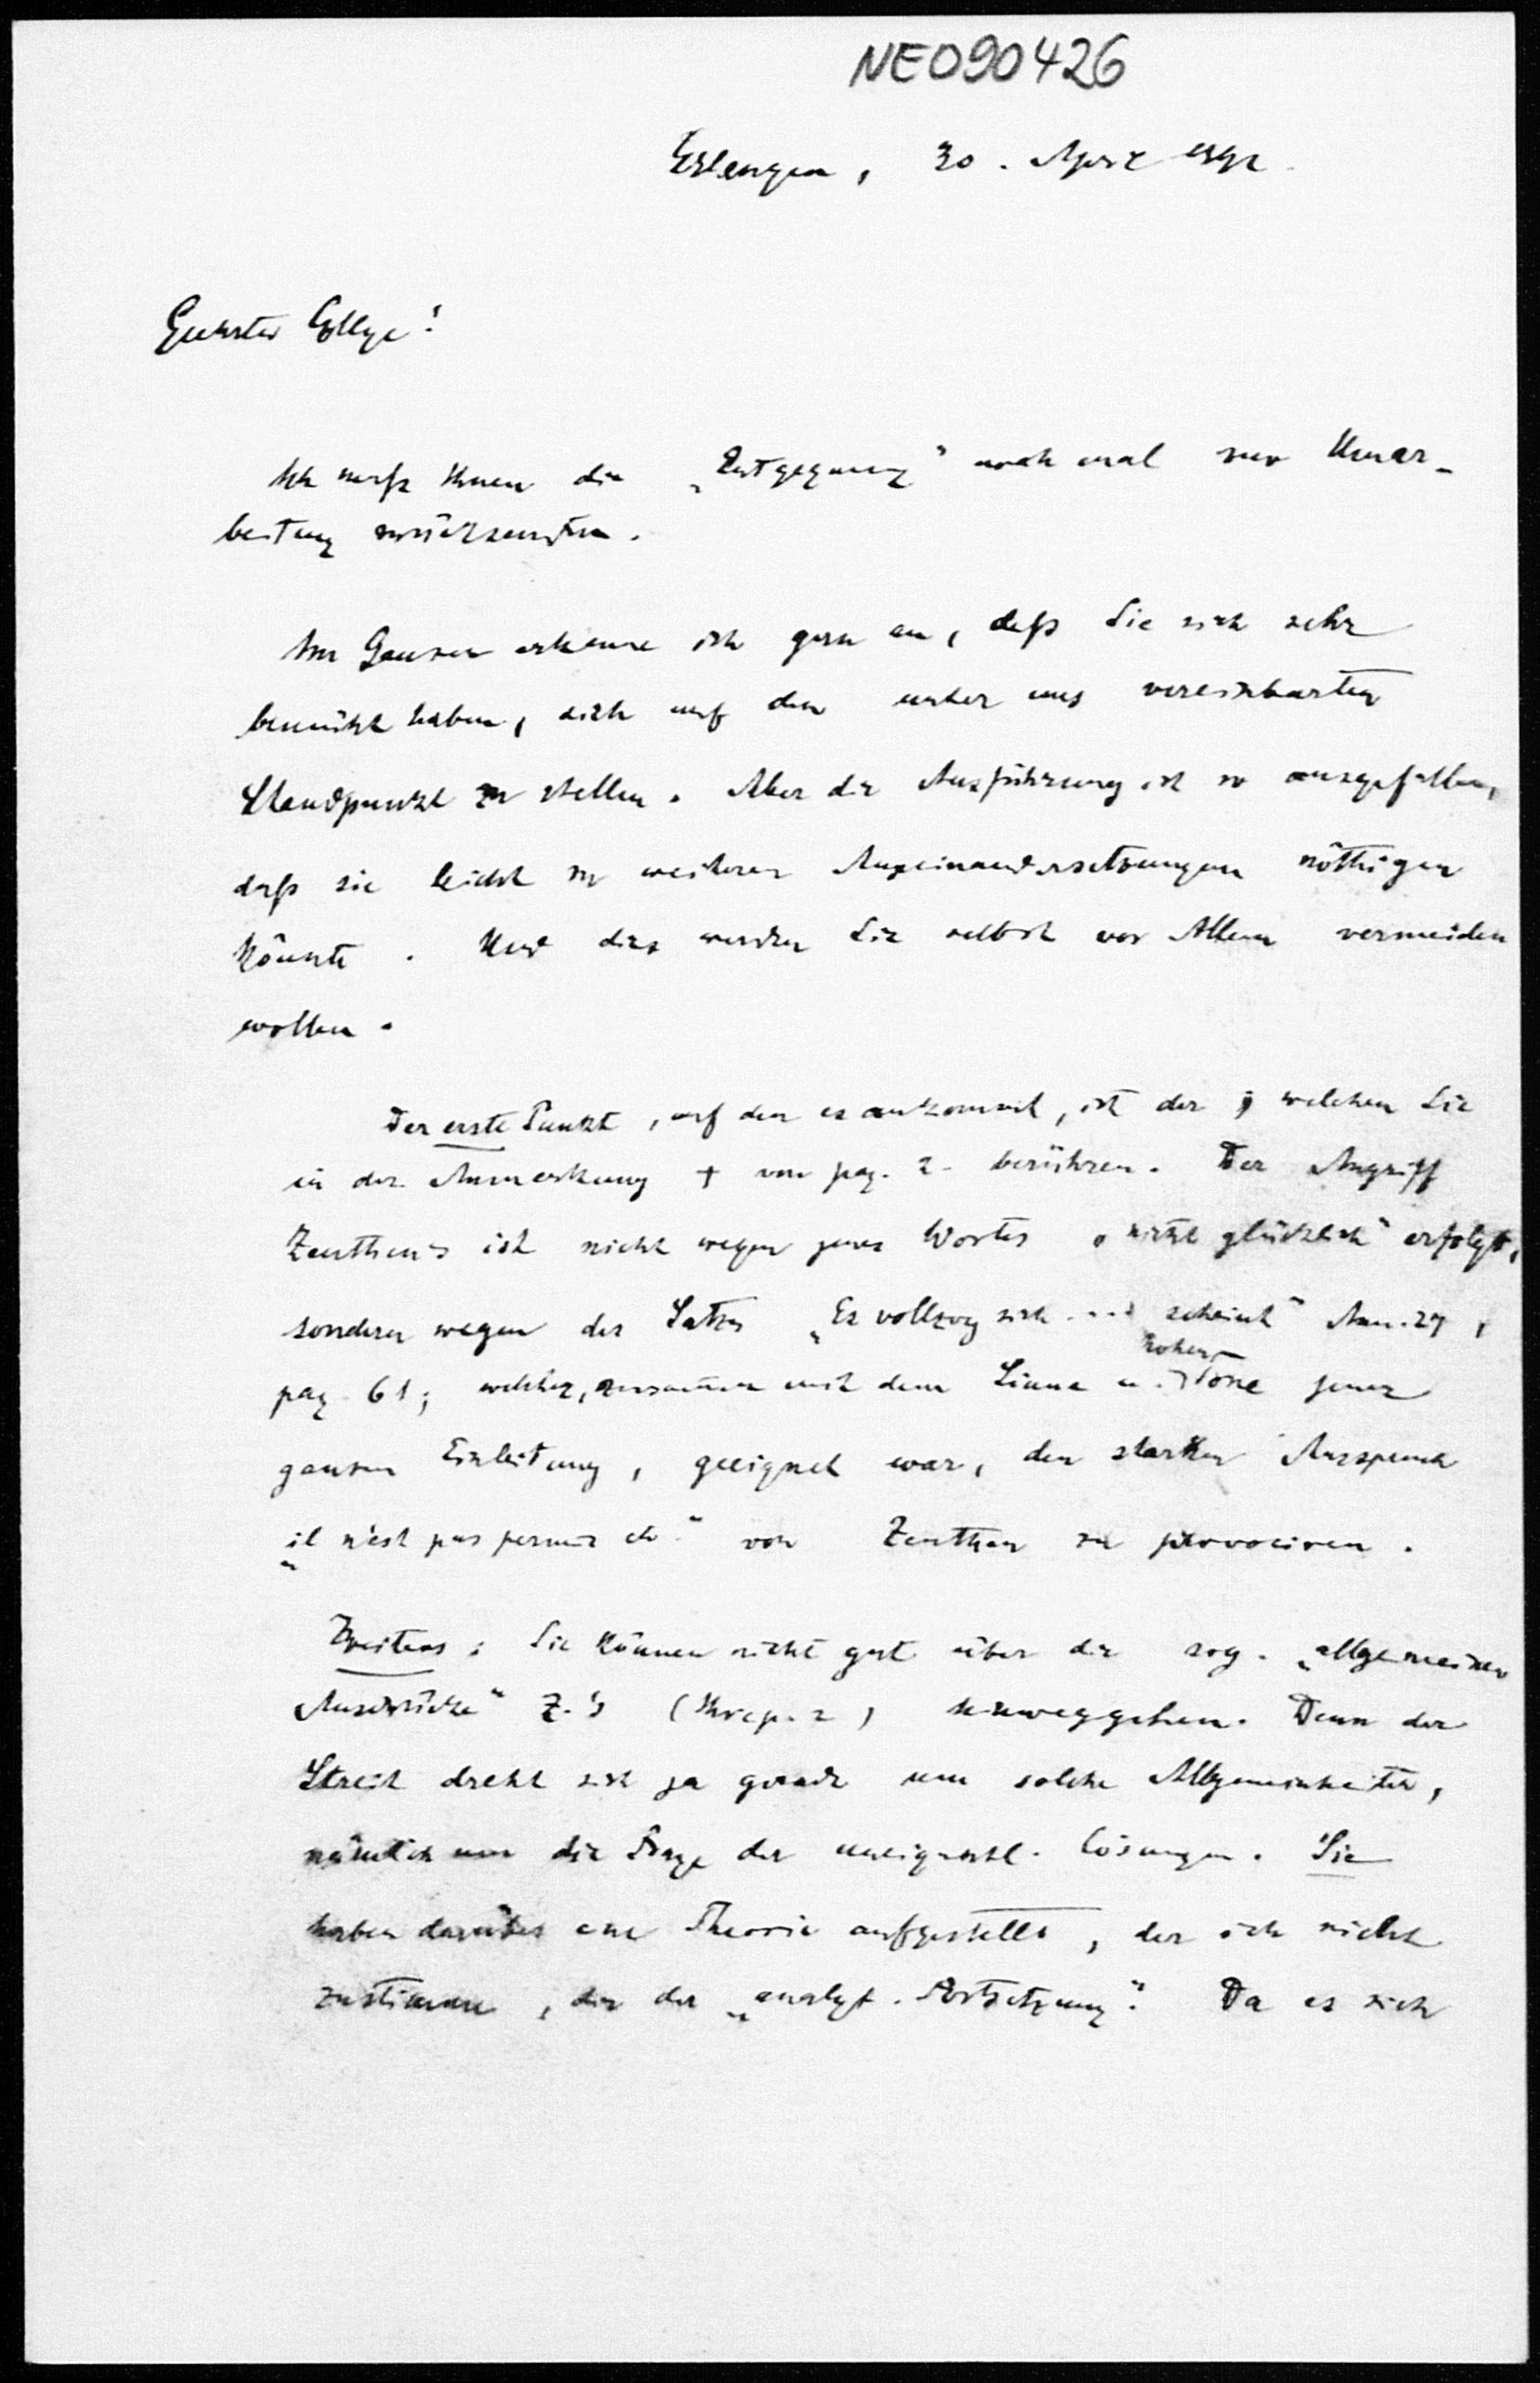 NE090426
Erlangen, 30. April 1892.
Geehrter College!
Ich muß Ihnen die „Entgegnung" noch mal zur Umar-
beitung zurücksenden.
Im Ganzen erkenne ich gern an, daß Sie sich sehr
bemüht haben, sich auf den unter uns vereinbarten
Standpunkt zu stellen. Aber die Ausführung ist so ausgefallen,
daß sie leicht zu weiteren Auseinandersetzungen nöthigen
könnte. Und dies werden Sie selbst vor Allem vermeiden
wollen.
Der erste Punkt, auf den es ankommt, ist der, welchen Sie
in der Anmerkung + von pag. 2 berühren. Der Angriff
Zeuthen's ist nicht wegen jenes Wortes „nicht glücklich" erfolgt,
sondern wegen des Satzes „Es vollzog sich ... scheint" Anm. 27,
pag. 61; welcher, zusammen mit dem Sinne u. hohen Tone jener
ganzen Einleitung, geeignet war, den starken Ausspruch
„il n'est pas permis etc" von Zeuthen zu provociren.
Zweitens: Sie können nicht gut über die sog. „allgemeinen
Ausdrücke" Z.'s (Ihre p. 2) hinweggehen. Denn der
Streit dreht sich ja gerade um solche Allgemeinheiten,
nämlich um die Frage der uneigentl. Lösungen. Sie
haben darüber eine Theorie aufgestellt, der ich nicht
zustimme, die der „analyt. Fortsetzung". Da es sich